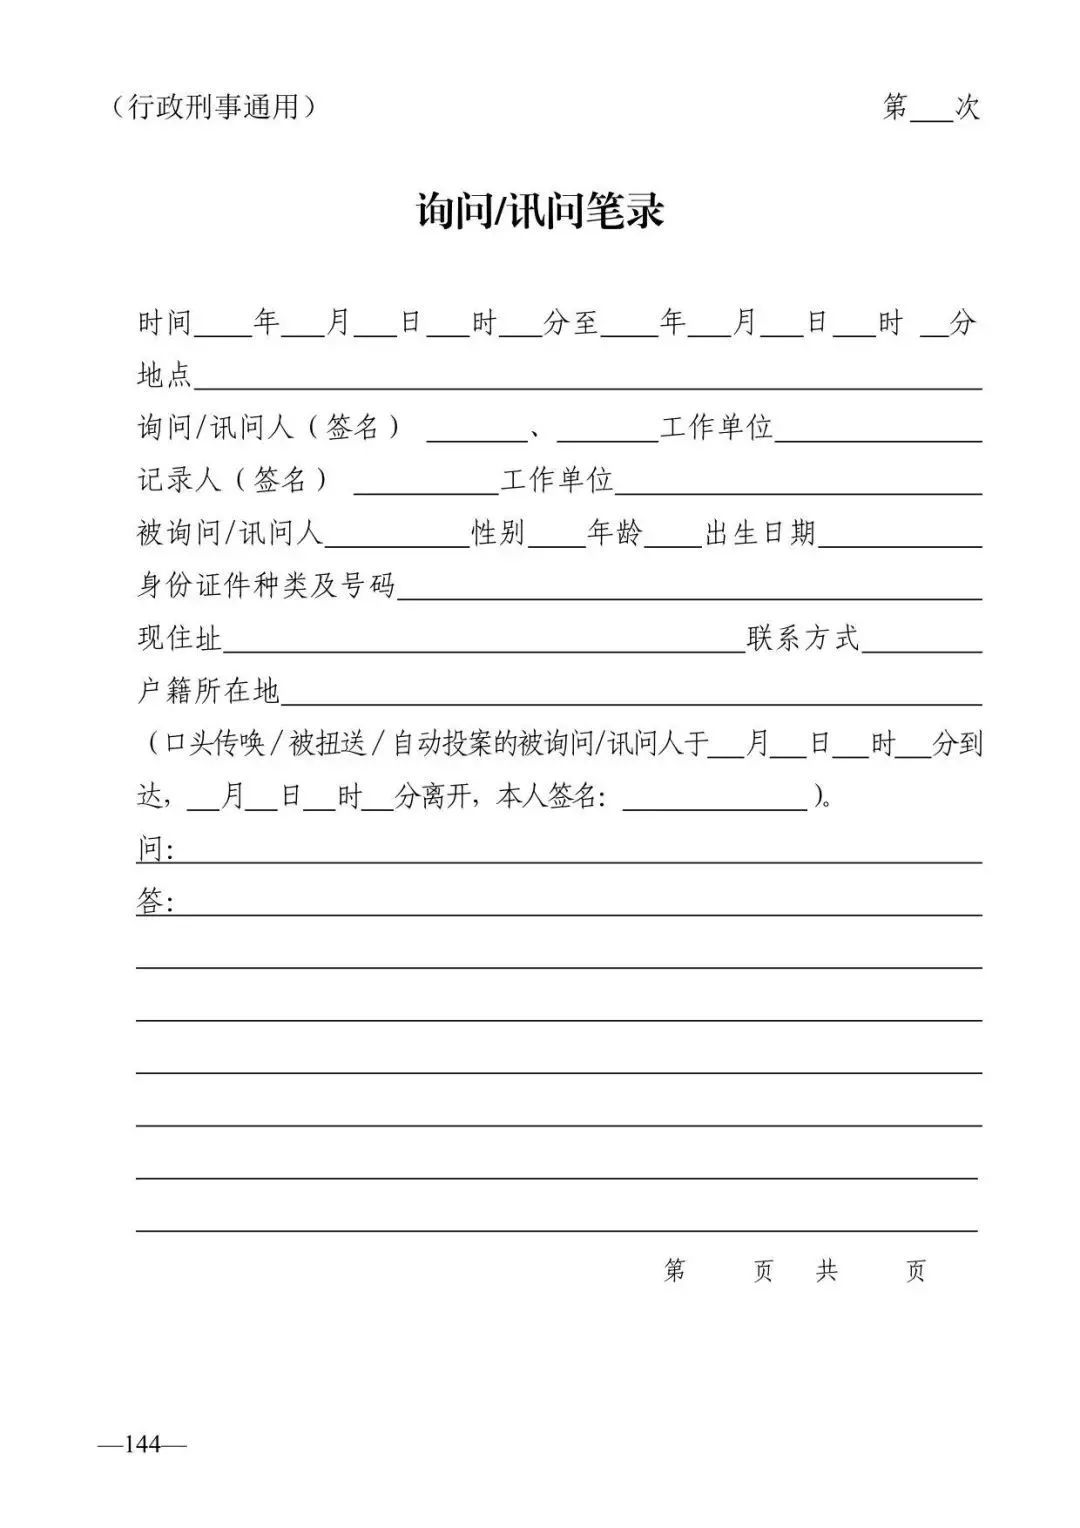 （行政刑事通用） 第___次
询问/讯问笔录
时间____年___月___日___时___分至____年___月___日___时 __分
地点______________________________
询问/讯问人（签名） _______、_______工作单位______________
记录人（签名） __________工作单位_________________________
被询问/讯问人__________性别____年龄____出生日期___________
身份证件种类及号码________________________________________
现住址____________________________________联系方式________
户籍所在地________________________________________________
（口头传唤/被扭送/自动投案的被询问/讯问人于__月__日__时__分到
达，__月__日__时__分离开，本人签名：____________）。
问：
答：
第 页 共 页
—144—